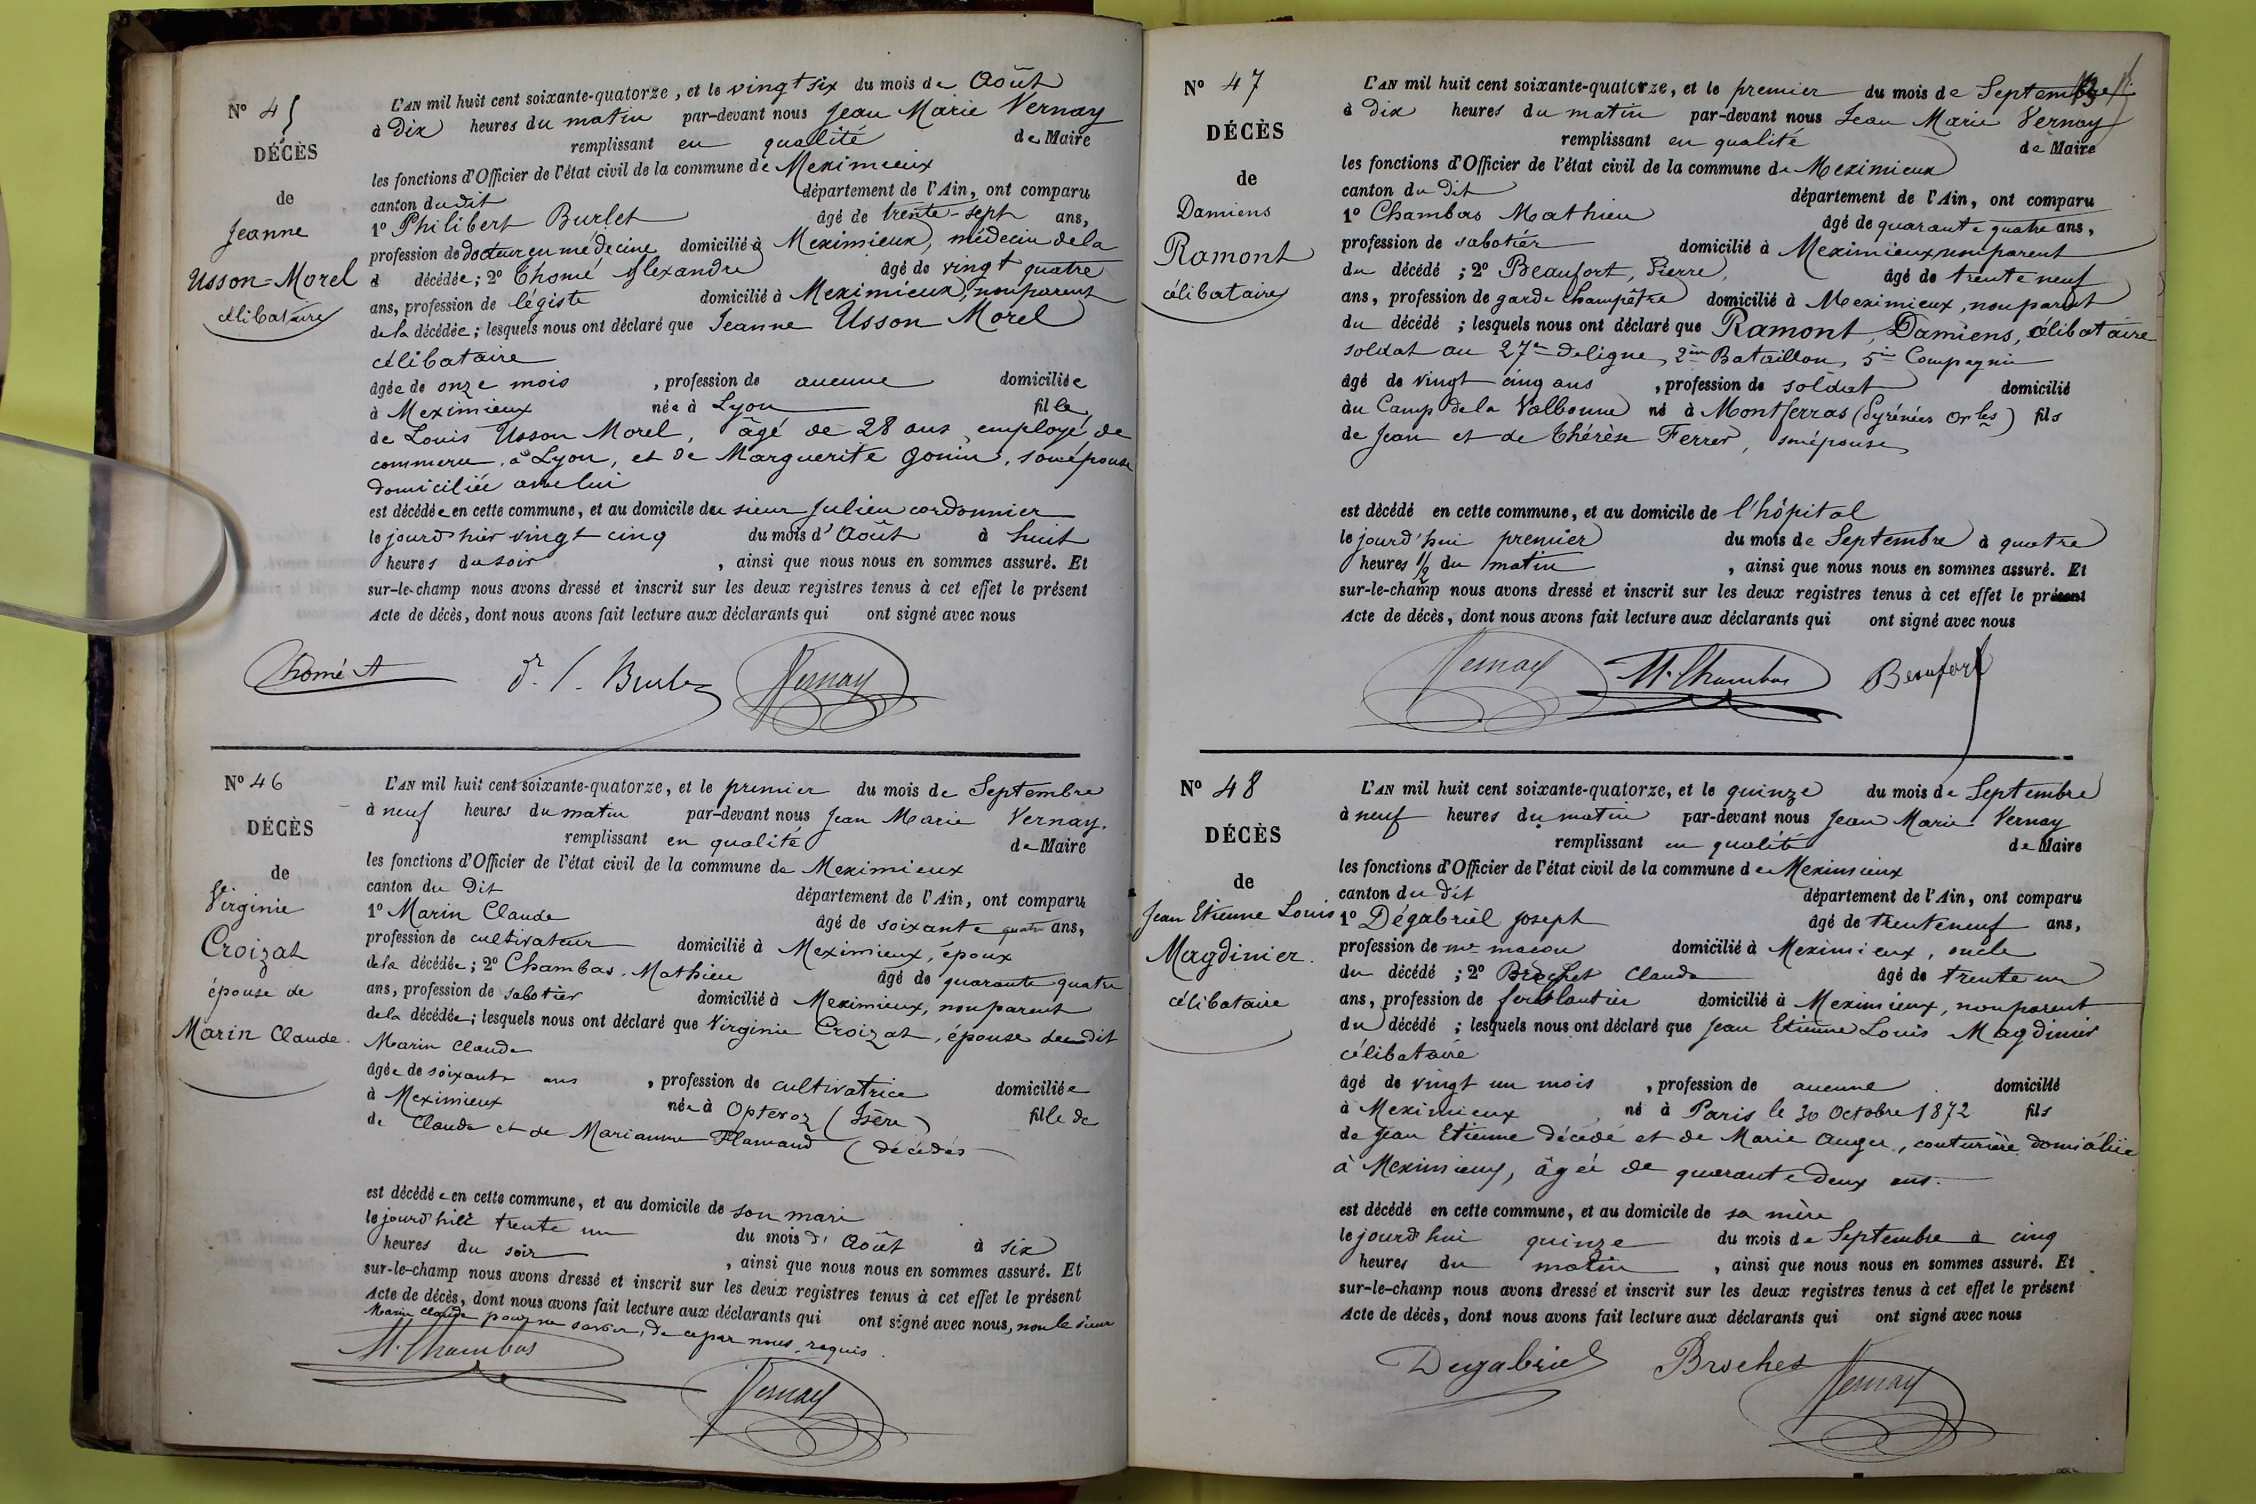 N° 45
DÉCÈS
de
Jeanne
Usson-Morel
célibataire
L'AN mil huit cent soixante-quatorze, et le vingt six du mois de Août
à Dix heures du matin par-devant nous Jean Marie Vernay
remplissant en qualité de Maire
les fonctions d'Officier de l'état civil de la commune de Meximieux
canton du dit département de l'Ain, ont comparu
1° Philibert Burlet âgé de trente-sept ans,
profession de docteur en médecine domicilié à Meximieux, médecin de la
d décédée; 2° Chomé Alexandre âgé de vingt quatre
ans, profession de légiste domicilié à Meximieux, non parent
de la décédée; lesquels nous ont déclaré que Jeanne Usson Morel
célibataire
âgée de onze mois, profession de aucune domiciliée
à Meximieux née à Lyon fille
de Louis Usson Morel, âgé de 28 ans, employé de
commerce, à Lyon, et de Marguerite Gonin, son épouse
domiciliée avec lui
est décédée en cette commune, et au domicile du sieur Julien cordonnier
le jourd'hier vingt cinq du mois d'Août à huit
heures du soir, ainsi que nous nous en sommes assuré. Et
sur-le-champ nous avons dressé et inscrit sur les deux registres tenus à cet effet le présent
Acte de décès, dont nous avons fait lecture aux déclarants qui ont signé avec nous
Chomé A Dr Burlet Vernay
N° 46
DÉCÈS
de
Virginie
Croizat
épouse de
Marin Claude.
L'AN mil huit cent soixante-quatorze, et le premier du mois de Septembre
à neuf heures du matin par-devant nous Jean Marie Vernay.
remplissant en qualité de Maire
les fonctions d'Officier de l'état civil de la commune de Meximieux
canton du Dit département de l'Ain, ont comparu
1° Marin Claude âgé de soixante quatre ans,
profession de cultivateur domicilié à Meximieux, époux
de la décédée; 2° Chambas, Mathieu âgé de quarante quatre
ans, profession de sabotier domicilié à Meximieux, non parent
de la décédée; lesquels nous ont déclaré que Virginie Croizat, épouse du dit
Marin Claude
âgée de soixante ans, profession de cultivatrice domiciliée
à Meximieux née à Optevoz (Isère) fille de
de Claude et de Marianne Flamand (décédés
est décédée en cette commune, et au domicile de son mari
le jourd'hier trente un du mois d'Août à six
heures du soir, ainsi que nous nous en sommes assuré. Et
sur-le-champ nous avons dressé et inscrit sur les deux registres tenus à cet effet le présent
Acte de décès, dont nous avons fait lecture aux déclarants qui ont signé avec nous, non le sieur
Marin Claude pour ne savoir, de ce par nous requis.
M. Chambas Vernay
N° 47
DÉCÈS
de
Damiens
Ramont
célibataire
L'AN mil huit cent soixante-quatorze, et le premier du mois de Septembre
à Dix heures du matin par-devant nous Jean Marie Vernay
remplissant en qualité de Maire
les fonctions d'Officier de l'état civil de la commune de Meximieux
canton du Dit département de l'Ain, ont comparu
1° Chambas Mathieu âgé de quarante quatre ans,
profession de sabotier domicilié à Meximieux, non parent
du décédé; 2° Beaufort, Pierre, âgé de trente neuf
ans, profession de garde champêtre domicilié à Meximieux, non parent
du décédé; lesquels nous ont déclaré que Ramont, Damiens, célibataire
soldat au 27e de ligne, 2me Bataillon, 5me Compagnie
âgé de vingt cinq ans, profession de soldat domicilié
au Camp de la Valbonne né à Montferras (Pyrénées Orles) fils
de Jean et de Thérèse Ferrer, son épouse
est décédé en cette commune, et au domicile de l'hôpital
le jourd'hui premier du mois de Septembre à quatre
heures 1/2 du matin, ainsi que nous nous en sommes assuré. Et
sur-le-champ nous avons dressé et inscrit sur les deux registres tenus à cet effet le présent
Acte de décès, dont nous avons fait lecture aux déclarants qui ont signé avec nous
Vernay M. Chambas Beaufort
N° 48
DÉCÈS
de
Jean Etienne Louis
Magdinier.
célibataire
L'AN mil huit cent soixante-quatorze, et le quinze du mois de Septembre
à neuf heures du matin par-devant nous Jean Marie Vernay
remplissant en qualité de Maire
les fonctions d'Officier de l'état civil de la commune de Meximieux
canton du dit département de l'Ain, ont comparu
1° Dégabriel Joseph âgé de trente neuf ans,
profession de me macon domicilié à Meximieux, oncle
du décédé; 2° Brochet Claude âgé de trente un
ans, profession de ferblantier domicilié à Meximieux, non parent
du décédé; lesquels nous ont déclaré que Jean Etienne Louis Magdinier
célibataire
âgé de vingt un mois, profession de aucune domicilié
à Meximieux né à Paris le 30 octobre 1872 fils
de Jean Etienne décédé et de Marie Auger, couturière, domiciliée
à Meximieux, âgée de quarante deux ans.
est décédé en cette commune, et au domicile de sa mère
le jourd'hui quinze du mois de Septembre à cinq
heures du matin, ainsi que nous nous en sommes assuré. Et
sur-le-champ nous avons dressé et inscrit sur les deux registres tenus à cet effet le présent
Acte de décès, dont nous avons fait lecture aux déclarants qui ont signé avec nous
Degabriel Brochet Vernay